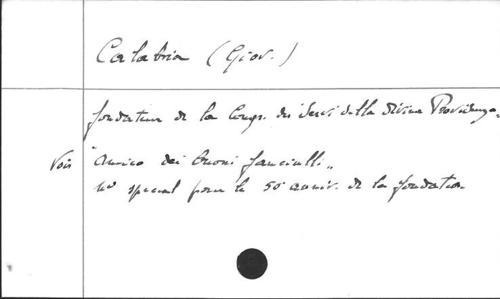 Calabria (Giov.)
fondateur de la Congr. dei Servi della divina Providenza.
Voir "Amico dei buoni fanciulli"
n° special pour le 50e anniv. de la fondation